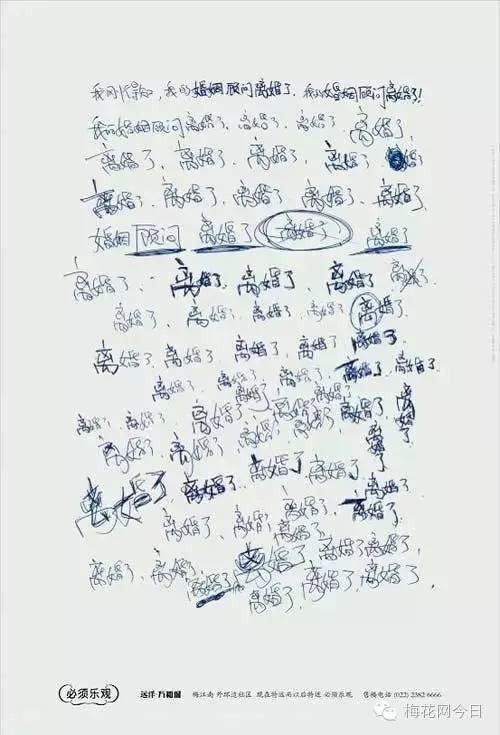 我刚得知，我的婚姻顾问离婚了，我的婚姻顾问离婚了！
我的婚姻顾问离婚了，离婚了，离婚了，离婚了，
离婚了，离婚了，离婚了，离婚了，离婚
离婚了，离婚了，离婚了，离婚了，离婚了，
婚姻顾问 离婚了 离婚了 离婚了
离婚了，离婚了，离婚了，离婚了，离婚了
离婚了，离婚了，离婚了，离婚了，离婚了，
离婚了，离婚了，离婚了，离婚了，离婚了
离婚了，离婚了，离婚了，离婚了，离婚了
离婚了，离婚了，离婚了，离婚了，离婚了，离婚了，离婚了
离婚了，离婚了，离婚了，离婚了，离婚了
离婚了，离婚了，离婚了，离婚了，离婚了
离婚了，离婚了，离婚了，离婚了
离婚了，离婚了，离婚了，离婚了，离婚了
离婚了，离婚了，离婚了，离婚了
必须乐观
远洋·万和城 梅江南 外环边社区 现在特远而以后特近 必须乐观 售楼电话 (022) 2382 6666
梅花网今日